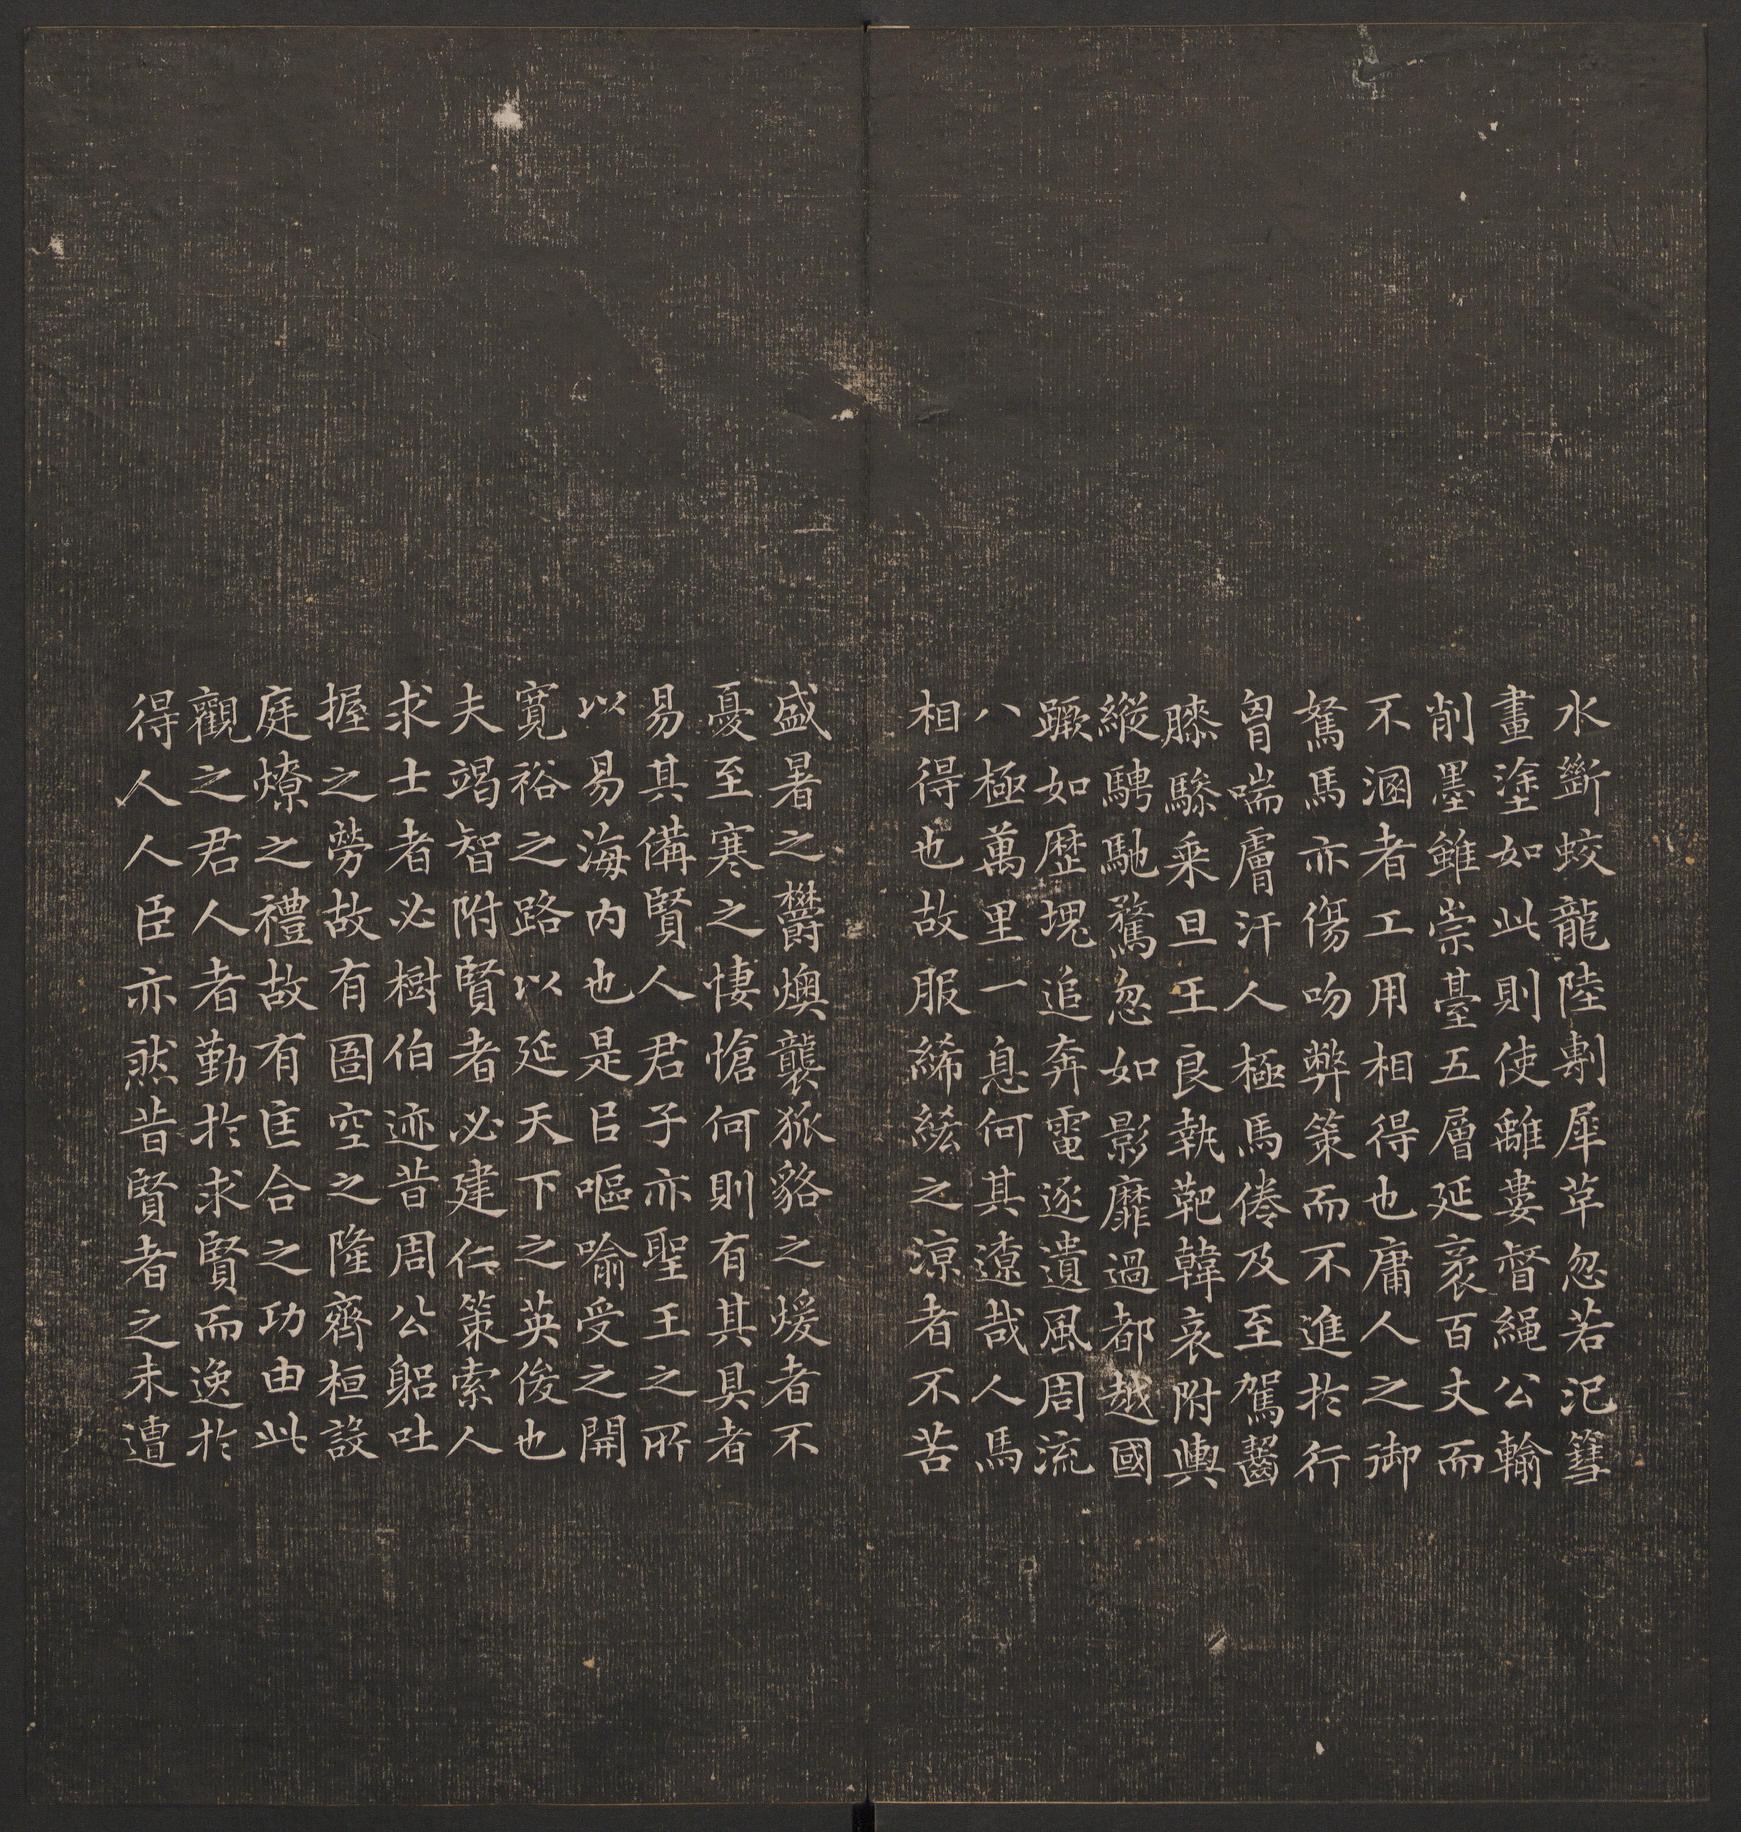 水斷蛟龍陸剸犀革忽若汜篲
畫塗如此則使離婁督繩公輸
削墨雖崇臺五層延袤百丈而
不溷者工用相得也庸人之御
駑馬亦傷吻弊策而不進於行
胷喘膚汗人極馬倦及至駕齧
膝驂乘旦王良執靶韓哀附輿
縱騁馳騖忽如影靡過都越國
蹶如歷塊追奔電逐遺風周流
八極萬里一息何其遼哉人馬
相得也故服絺綌之涼者不苦
盛暑之欝燠襲狐貉之煖者不
憂至寒之悽愴何則有其具者
易其備賢人君子亦聖王之所
以易海內也是㠯嘔喻受之開
寬裕之路以延天下之英俊也
夫竭智附賢者必建仁策索人
求士者必樹伯迹昔周公躬吐
握之勞故有圄空之隆齊桓設
庭燎之禮故有匡合之功由此
觀之君人者勤於求賢而逸於
得人人臣亦然昔賢者之未遭